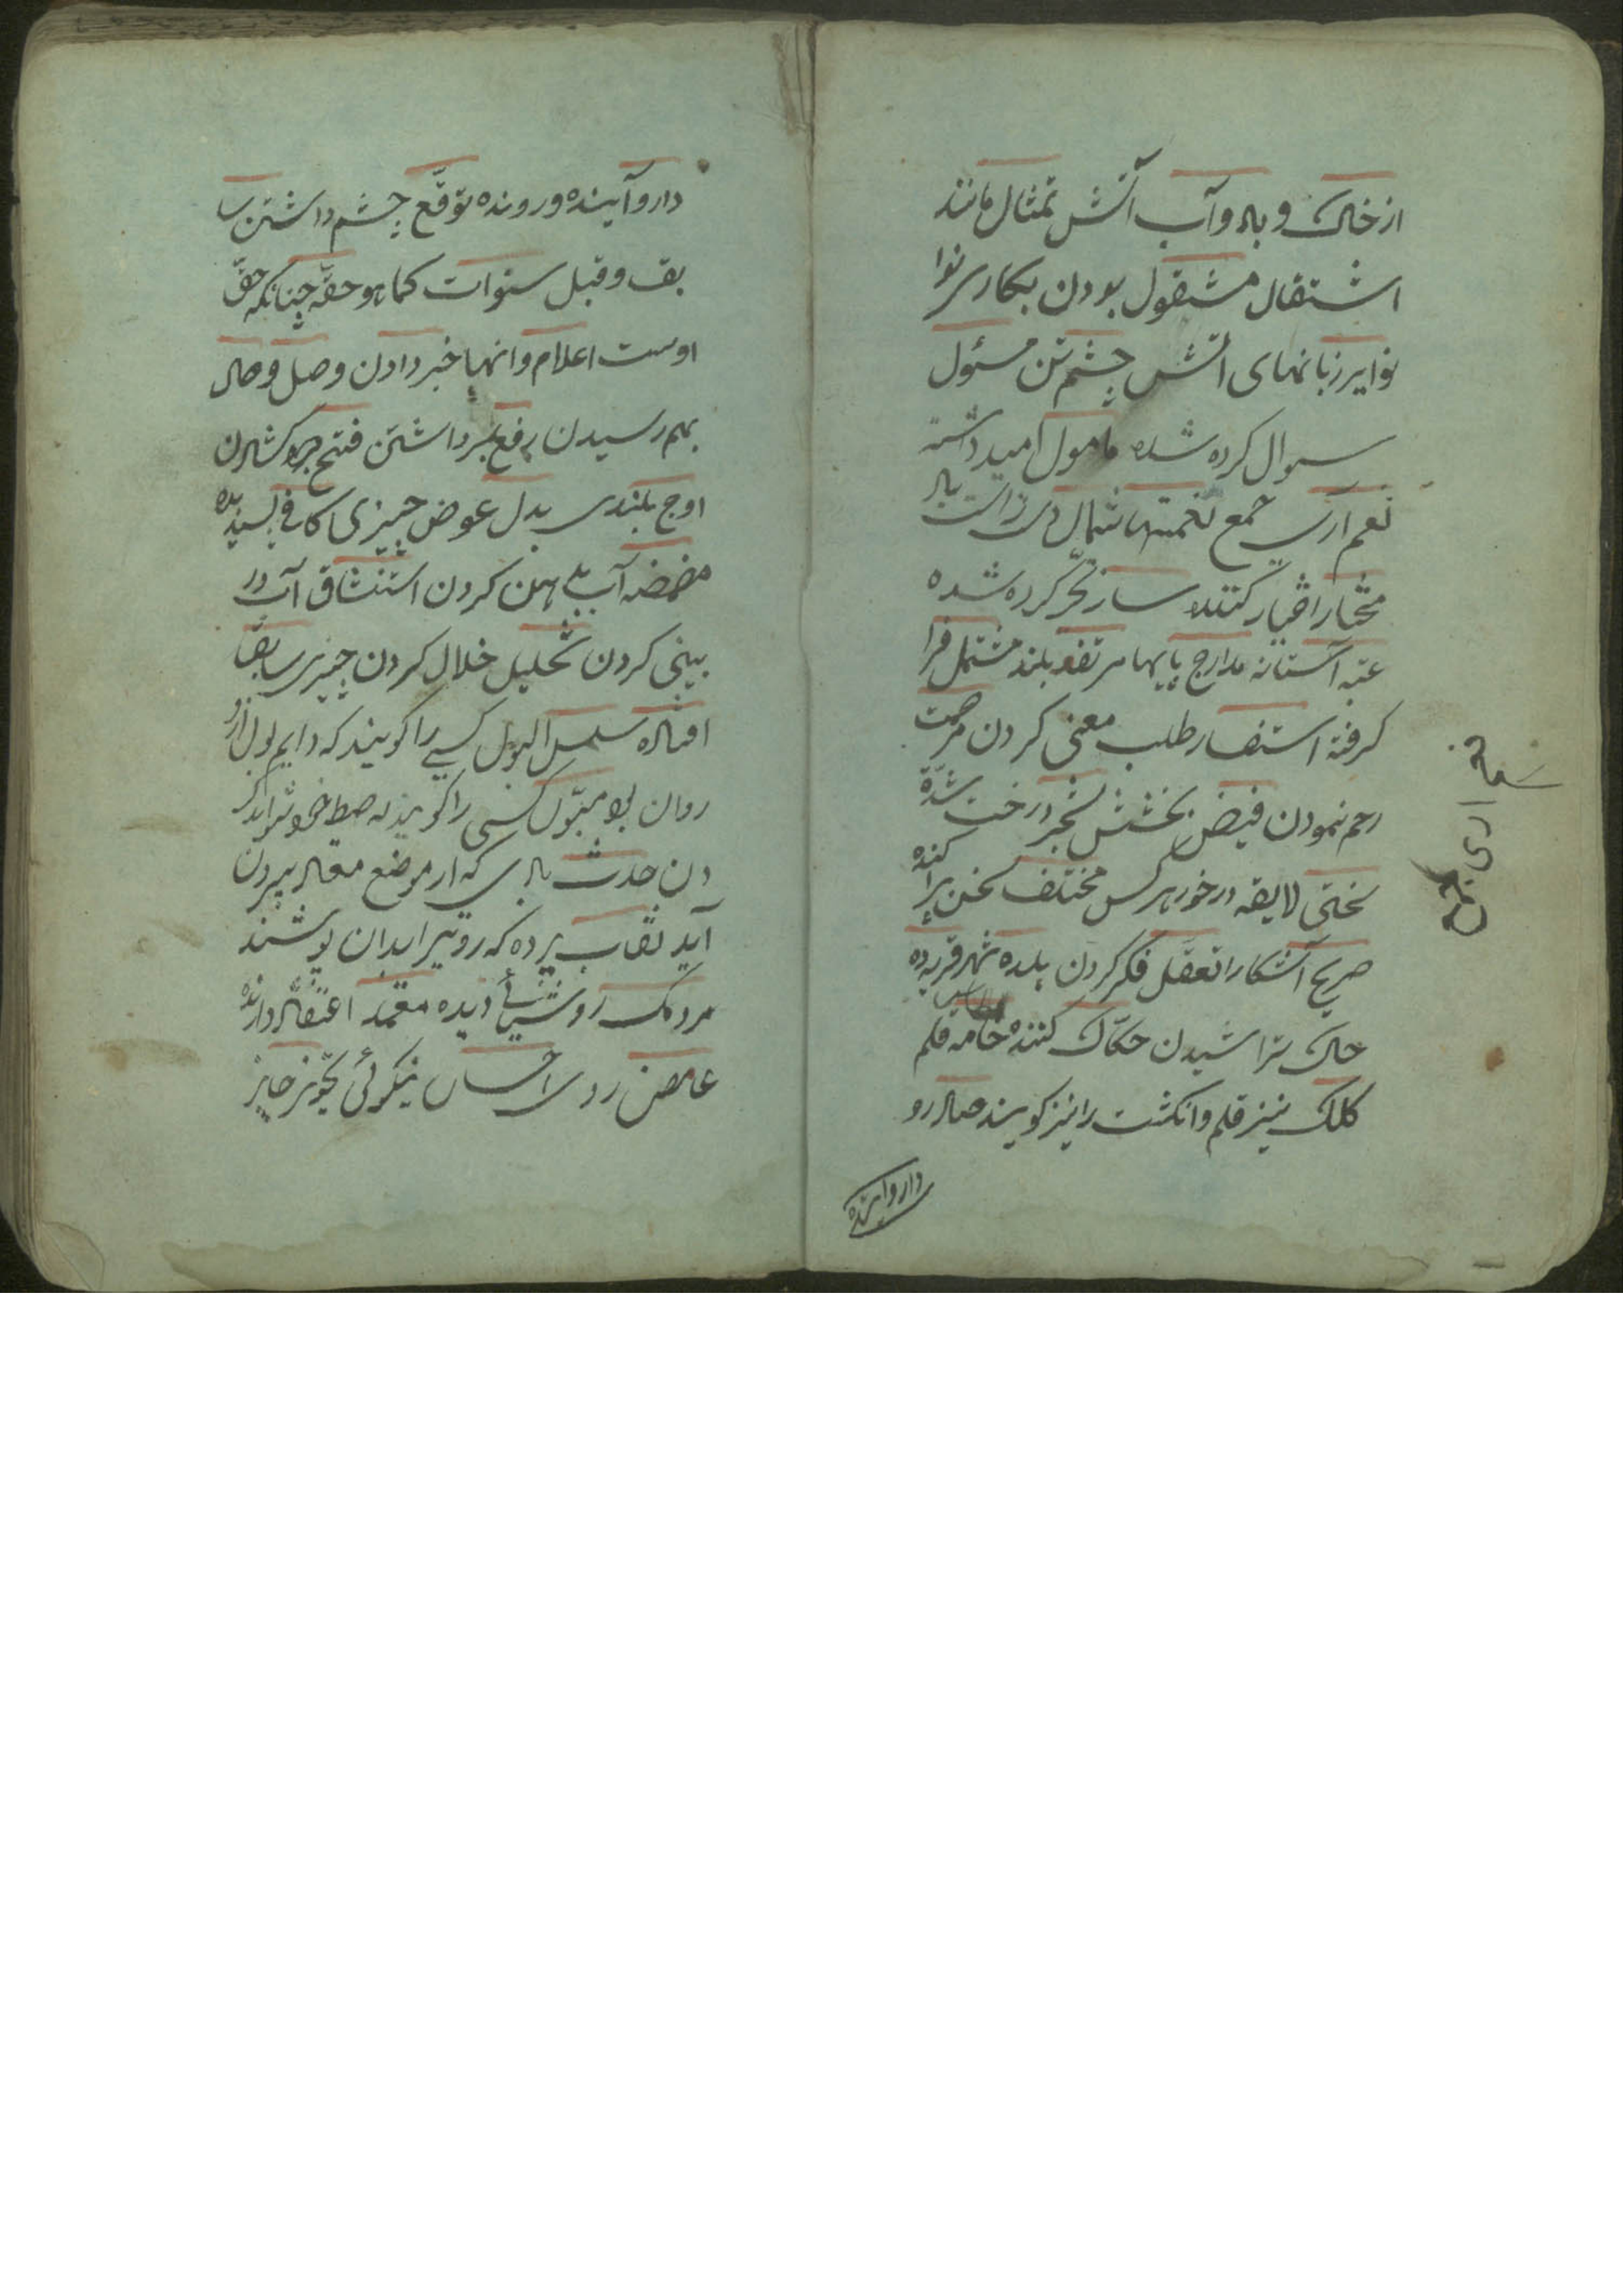 از خاک و باد و آب آتش تمثال مانند
اشتغال مشغول بودن بکاری نوا
نوایر زبانهای آتش چشم تن مسئول
سوال کرده شده مامول امید داشته
نعم آری جمع نعمتها شمال دست راست باد
مختار اختیار کننده ساز کرده شده
عتبه آستانه مدارج پایها مرتفع بلند مشتمل فرا
گرفته استفسار طلب معنی کردن مرحمت
رحم نمودن فیض بخشش شجر درخت شدة
سختی لایقه درخور هر کس مختلف سخن پراکنده
صریح آشکارا تعقل فکر کردن بلده شهر قریه ده
حاک تراشیدن حکاک کننده خامه قلم
کلک نیز قلم و انکشت را نیز کویند صادر رو
دار و آینده
دار و آینده و رونده توقع چشم داشتن سا
بق و قبل سنوات کما هو حقه چنانکه حق
اوست اعلام و انها خبر دادن وصل وصال
بهم رسیدن رفع برداشتن فتح کشادن
اوج بلندی بدل عوض چیزی کافی بسنده
مضمضه آب بدهن کردن استنشاق آب در
بینی کردن تخلیل خلال کردن چیزی سابقا
افتاده سلسل البول کسی را کویند که دایم بول ازو
روان بود کسی را کویند که ضبط خود
دن حدث بادی که از موضع معتاد بیرون
آید نقاب پرده که رو بر ابدان پوشند
مردمک روشنائی دیده معتمد اعتقاد دارنده
عارض روی احسان نیکوئی تجویز جایز